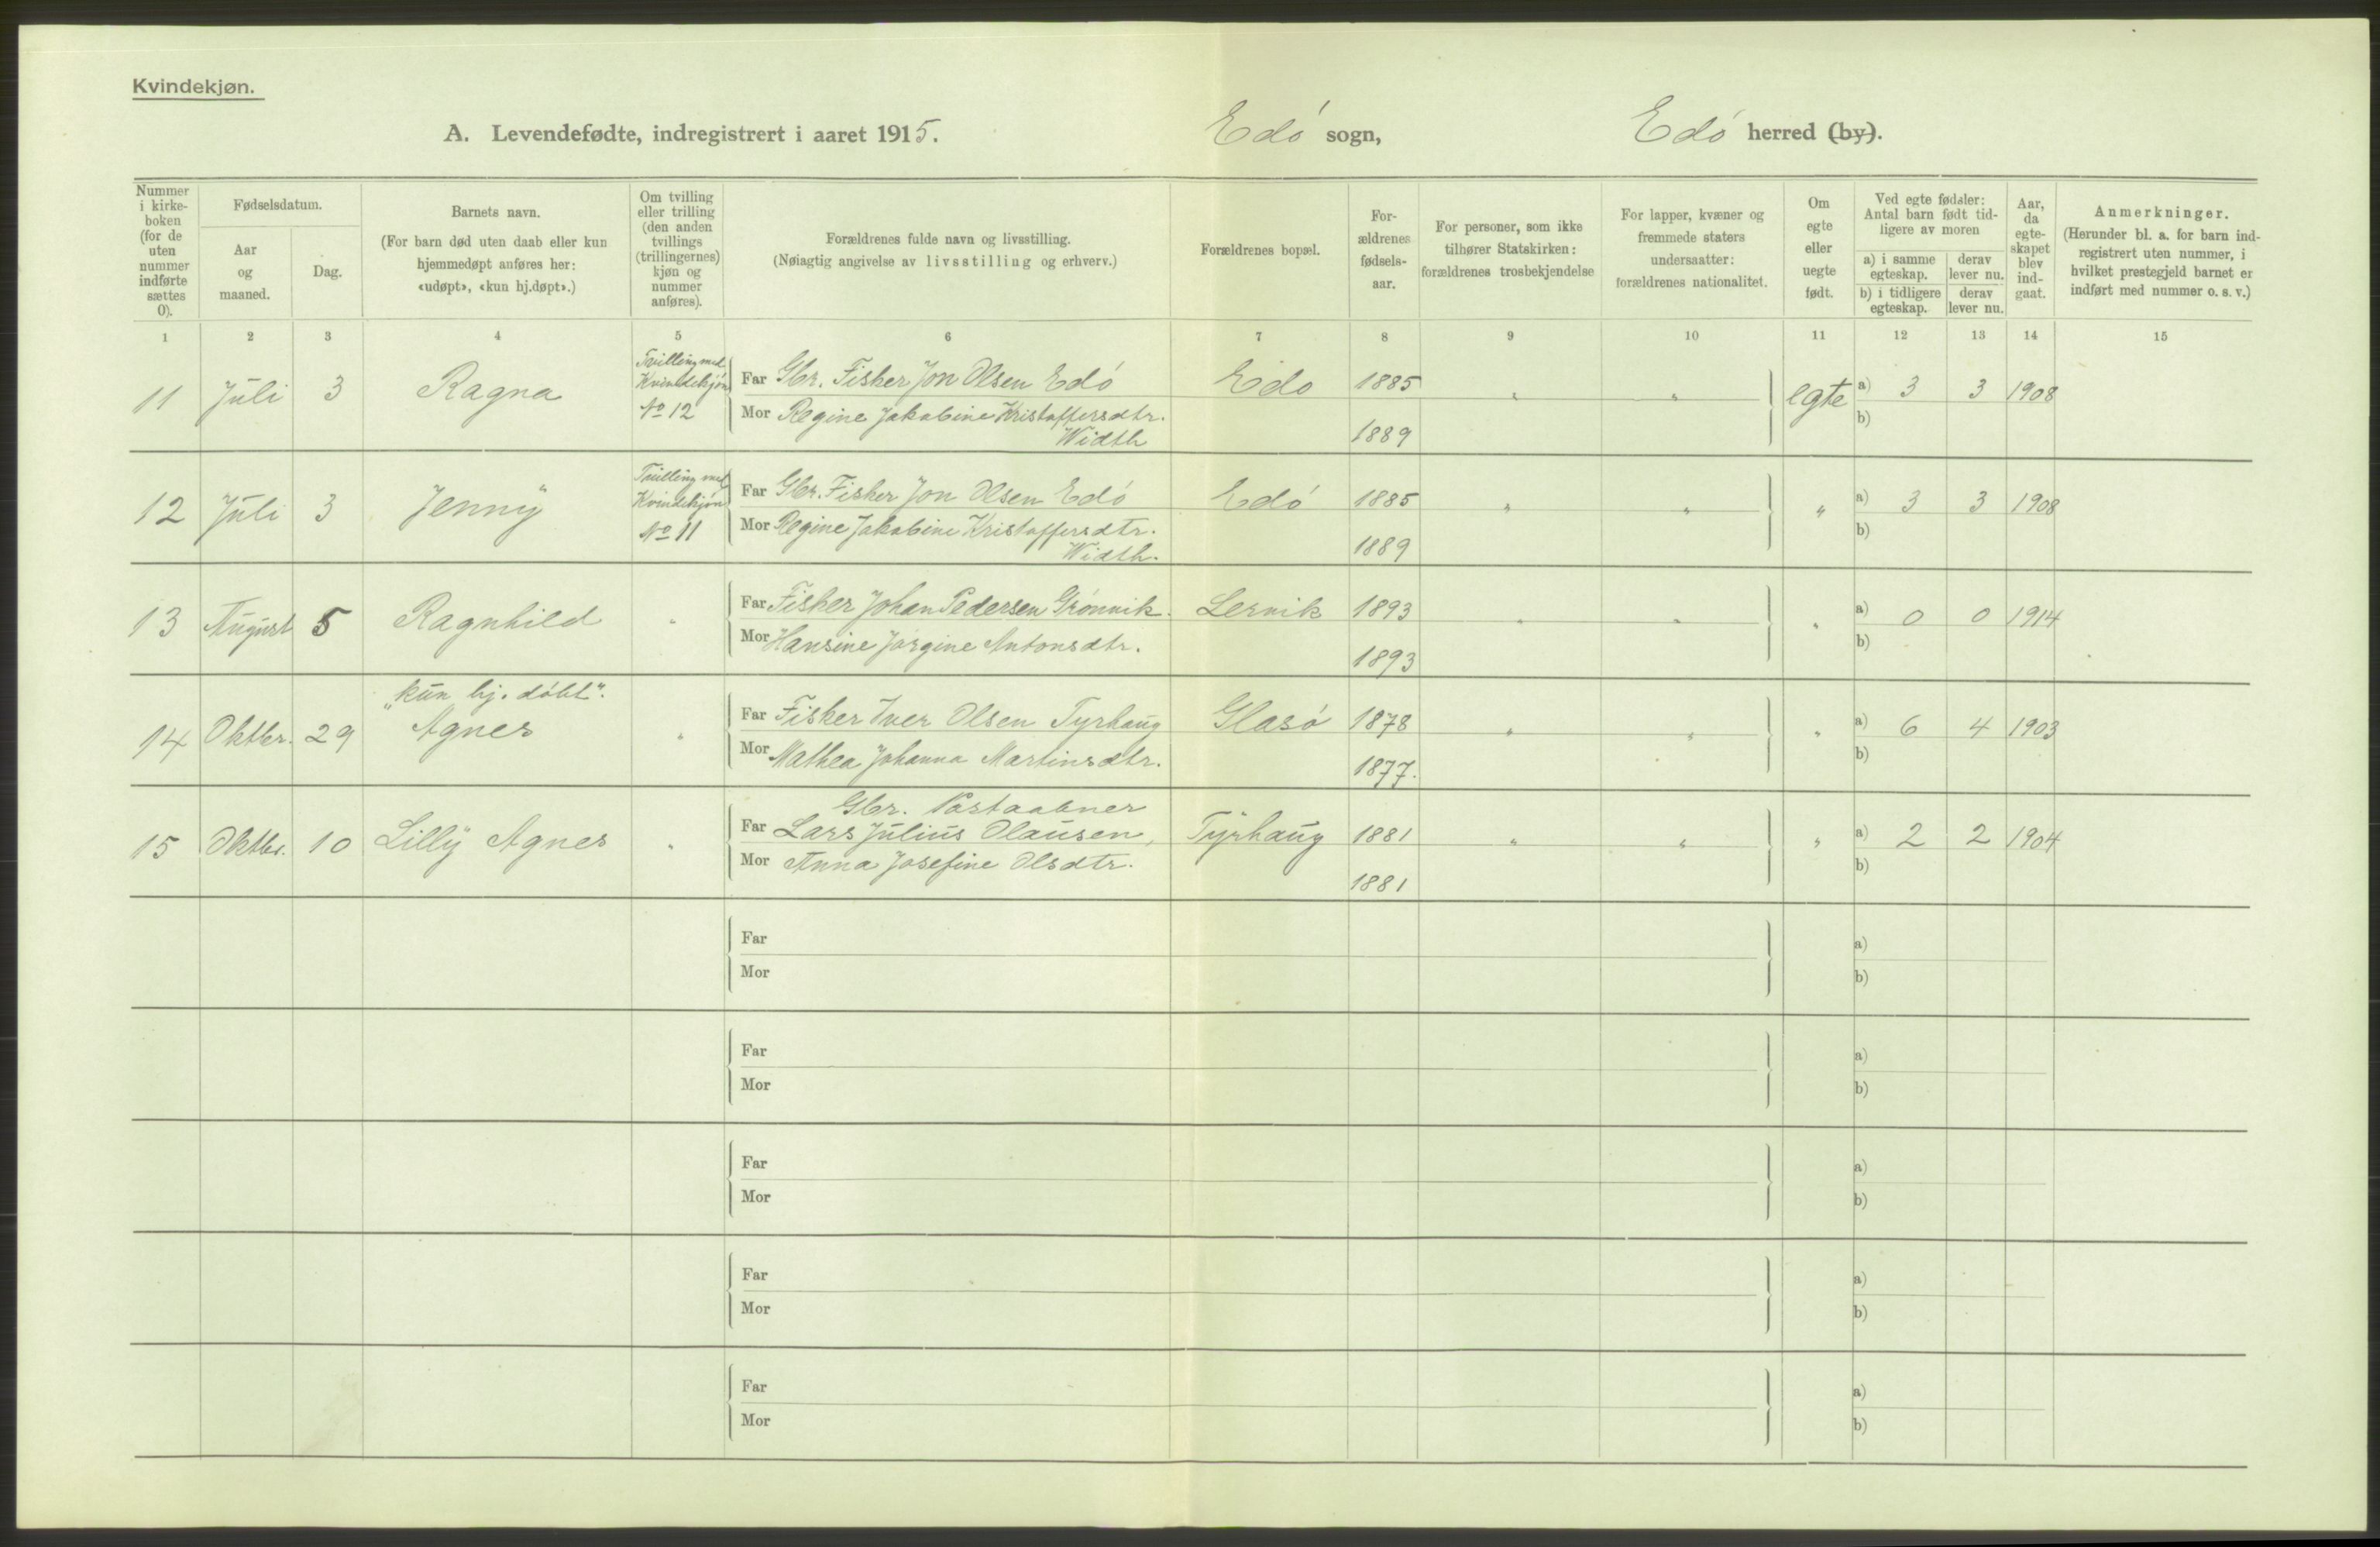 Kvindekjøn.
A. Levendefødte, indregistrert i aaret 1915. Edó sogn, Edó herred (by).
Nummer i kirke-boken (for de uten nummer indførte sættes 0).
Fødselsdatum.
Aar og maaned.
Dag.
Barnets navn.
(For barn død uten daab eller kun hjemmedøpt anføres her: «udøpt», «kun hj.døpt».)
Om tvilling eller trilling (den anden tvillings (trillingernes) kjøn og nummer anføres).
Forældrenes fulde navn og livsstilling.
(Nøiagtig angivelse av livsstilling og erhverv.)
Forældrenes bopæl.
For-ældrenes fødsels-aar.
For personer, som ikke tilhører Statskirken: forældrenes trosbekjendelse
For lapper, kvæner og fremmede staters undersaatter: forældrenes nationalitet.
Om egte eller uegte født.
Ved egte fødsler: Antal barn født tid-ligere av moren
a) i samme egteskap.
derav lever nu.
b) i tidligere egteskap.
derav lever nu.
Aar, da egte-skapet blev ind-gaat.
Anmerkninger.
(Herunder bl. a. for barn ind-registrert uten nummer, i hvilket prestegjeld barnet er indført med nummer o. s. v.)
1 2 3 4 5 6 7 8 9 10 11 12 13 14 15
11 Juli 3 Ragna Tvilling med Kvindekjøn No 12 Far Gbr. Fisker Jon Olsen Edó Edo 1885 " " egte a) 3 3 1908
Mor Regine Jakobine Kristoffersdtr. Width 1889 b)
12 Juli 3 Jenny Tvilling med Kvindekjøn No 11 Far Gbr. Fisker Jon Olsen Edó Edó 1885 " " " a) 3 3 1908
Mor Regine Jakobine Kristoffersdtr. Width. 1889 b)
13 August 5 Ragnhild " Far Fisker Johan Pedersen Grónnik. Lervik 1893 " " " a) 0 0 1914
Mor Hansine Jørgine Antonsdtr. 1893 b)
„kun hj. dóbt".
14 Oktbr. 29 Agnes " Far Fisker Iver Olsen Tyrhaug Glasó 1878 " " " a) 6 4 1903
Mor Mathea Johanna Martinsdtr. 1877. b)
Gbr. Postaabner
15 Oktbr. 10 Lilly Agnes " Far Lars Julius Olausen, Tyrhaug 1881 " " " a) 2 2 1904
Mor Anna Josefine Olsdtr. 1881 b)
Far a)
Mor b)
Far a)
Mor b)
Far a)
Mor b)
Far a)
Mor b)
Far a)
Mor b)